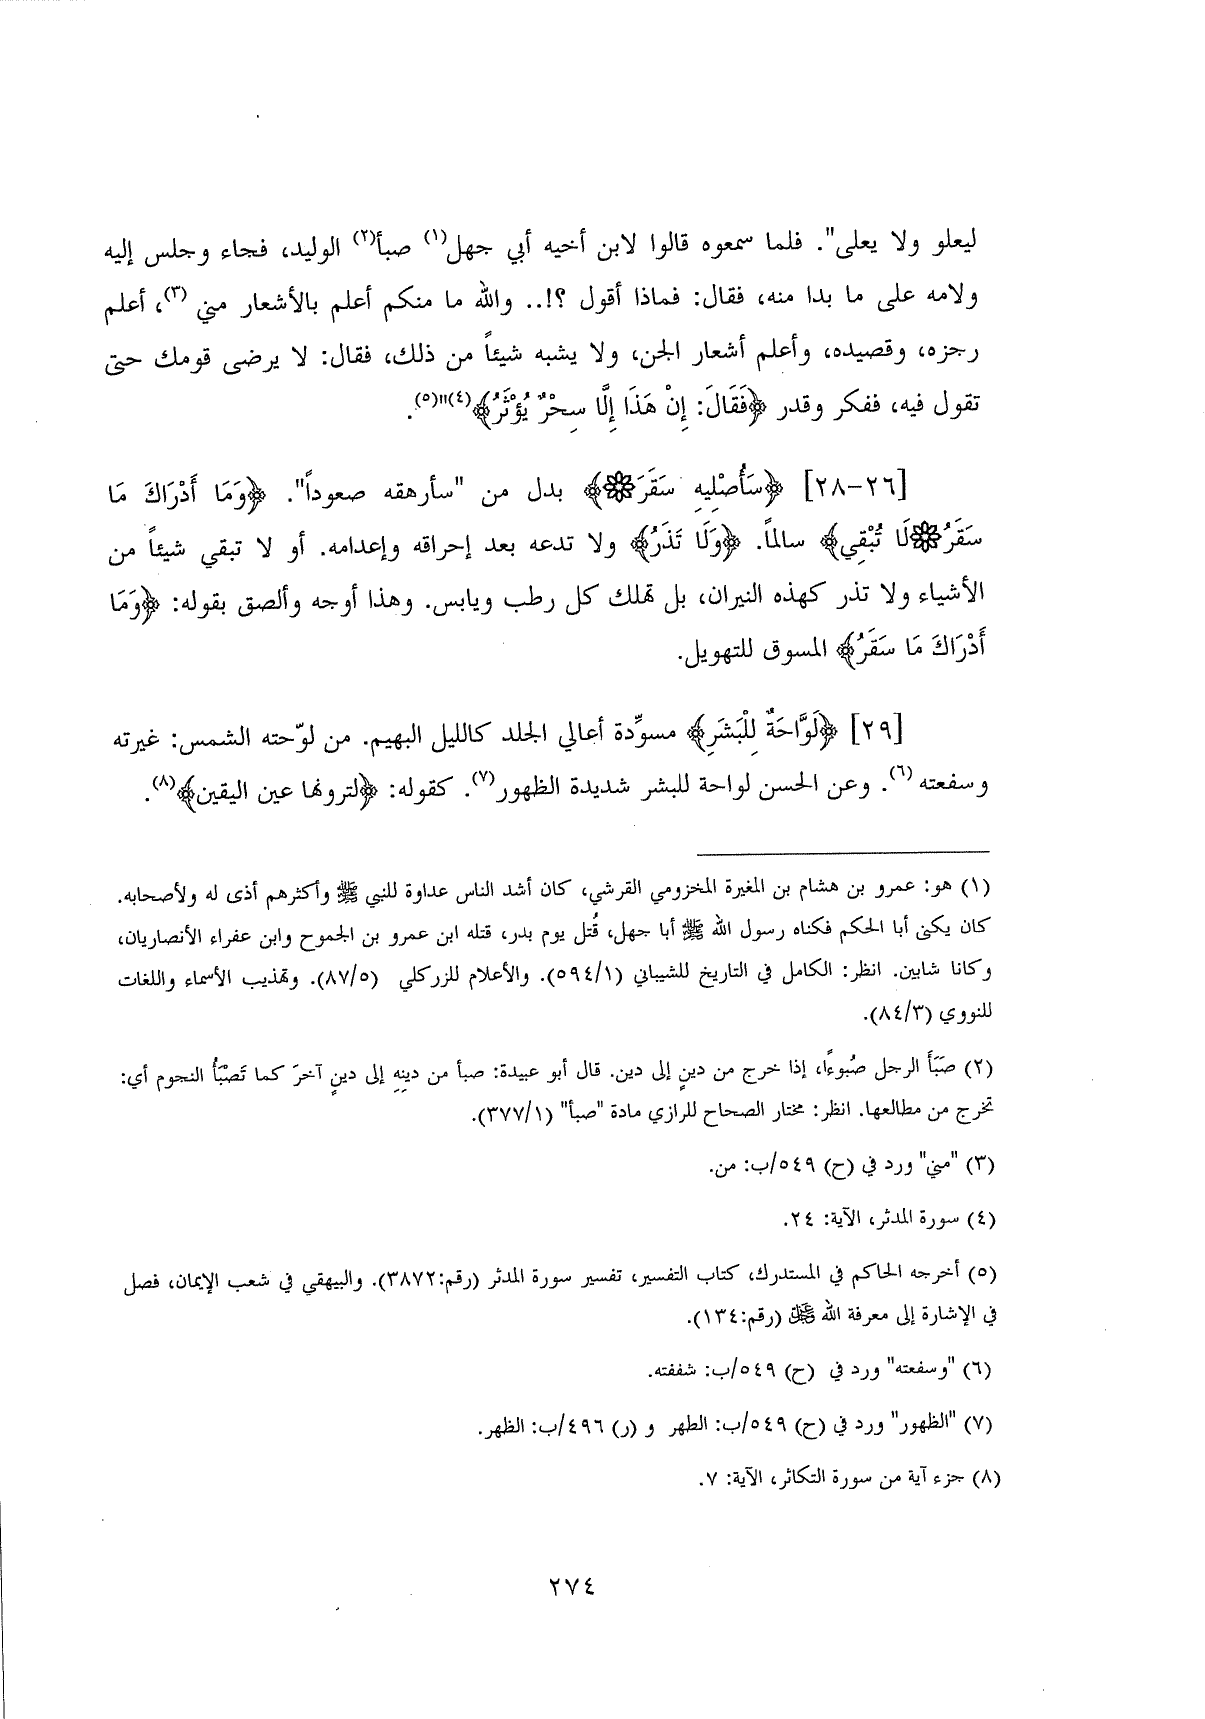 ليعلو ولا يعلى". فلما سمعوه قالوا لابن أخيه أبي جهل(١) صبأ(٢) الوليد، فجاء وجلس إليه
ولامه على ما بدا منه، فقال: فماذا أقول ؟!.. والله ما منكم أعلم بالأشعار مني (٣)، أعلم
رجزه، وقصيده، وأعلم أشعار الجن، ولا يشبه شيئاً من ذلك، فقال: لا يرضى قومك حتى
تقول فيه، ففكر وقدر ﴿فَقَالَ: إِنْ هَذَا إِلَّا سِحْرٌ يُؤْثَرُ﴾(٤)"(٥).
[٢٦-٢٨] ﴿سَأُصْلِيهِ سَقَرَ۝﴾ بدل من "سأرهقه صعوداً". ﴿وَمَا أَدْرَاكَ مَا
سَقَرُ۝لَا تُبْقِي﴾ سالماً. ﴿وَلَا تَذَرُ﴾ ولا تدعه بعد إحراقه وإعدامه. أو لا تبقي شيئاً من
الأشياء ولا تذر كهذه النيران، بل تهلك كل رطب ويابس. وهذا أوجه وألصق بقوله: ﴿وَمَا
أَدْرَاكَ مَا سَقَرُ﴾ المسوق للتهويل.
[٢٩] ﴿لَوَّاحَةٌ لِلْبَشَرِ﴾ مسوِّدة أعالي الجلد كالليل البهيم. من لوّحته الشمس: غيرته
وسفعته (٦). وعن الحسن لواحة للبشر شديدة الظهور(٧). كقوله: ﴿لترونها عين اليقين﴾(٨).
(١) هو: عمرو بن هشام بن المغيرة المخزومي القرشي، كان أشد الناس عداوة للنبي ﷺ وأكثرهم أذى له ولأصحابه.
كان يكنى أبا الحكم فكناه رسول الله ﷺ أبا جهل، قُتل يوم بدر، قتله ابن عمرو بن الجموح وابن عفراء الأنصاريان،
وكانا شابين. انظر: الكامل في التاريخ للشيباني (٥٩٤/١). والأعلام للزركلي (٨٧/٥). وتهذيب الأسماء واللغات
للنووي (٨٤/٣).
(٢) صَبَأَ الرجل صُبوءًا، إذا خرج من دينٍ إلى دين. قال أبو عبيدة: صبأ من دينِهِ إلى دينٍ آخرَ كما تَصْبَأُ النجوم أي:
تخرج من مطالعها. انظر: مختار الصحاح للرازي مادة "صبأ" (٣٧٧/١).
(٣) "مني" ورد في (ح) ٥٤٩/ب: من.
(٤) سورة المدثر، الآية: ٢٤.
(٥) أخرجه الحاكم في المستدرك، كتاب التفسير، تفسير سورة المدثر (رقم:٣٨٧٢). والبيهقي في شعب الإيمان، فصل
في الإشارة إلى معرفة الله ﷻ (رقم:١٣٤).
(٦) "وسفعته" ورد في (ح) ٥٤٩/ب: شففته.
(٧) "الظهور" ورد في (ح) ٥٤٩/ب: الطهر و (ر) ٤٩٦/ب: الظهر.
(٨) جزء آية من سورة التكاثر، الآية: ٧.
٢٧٤